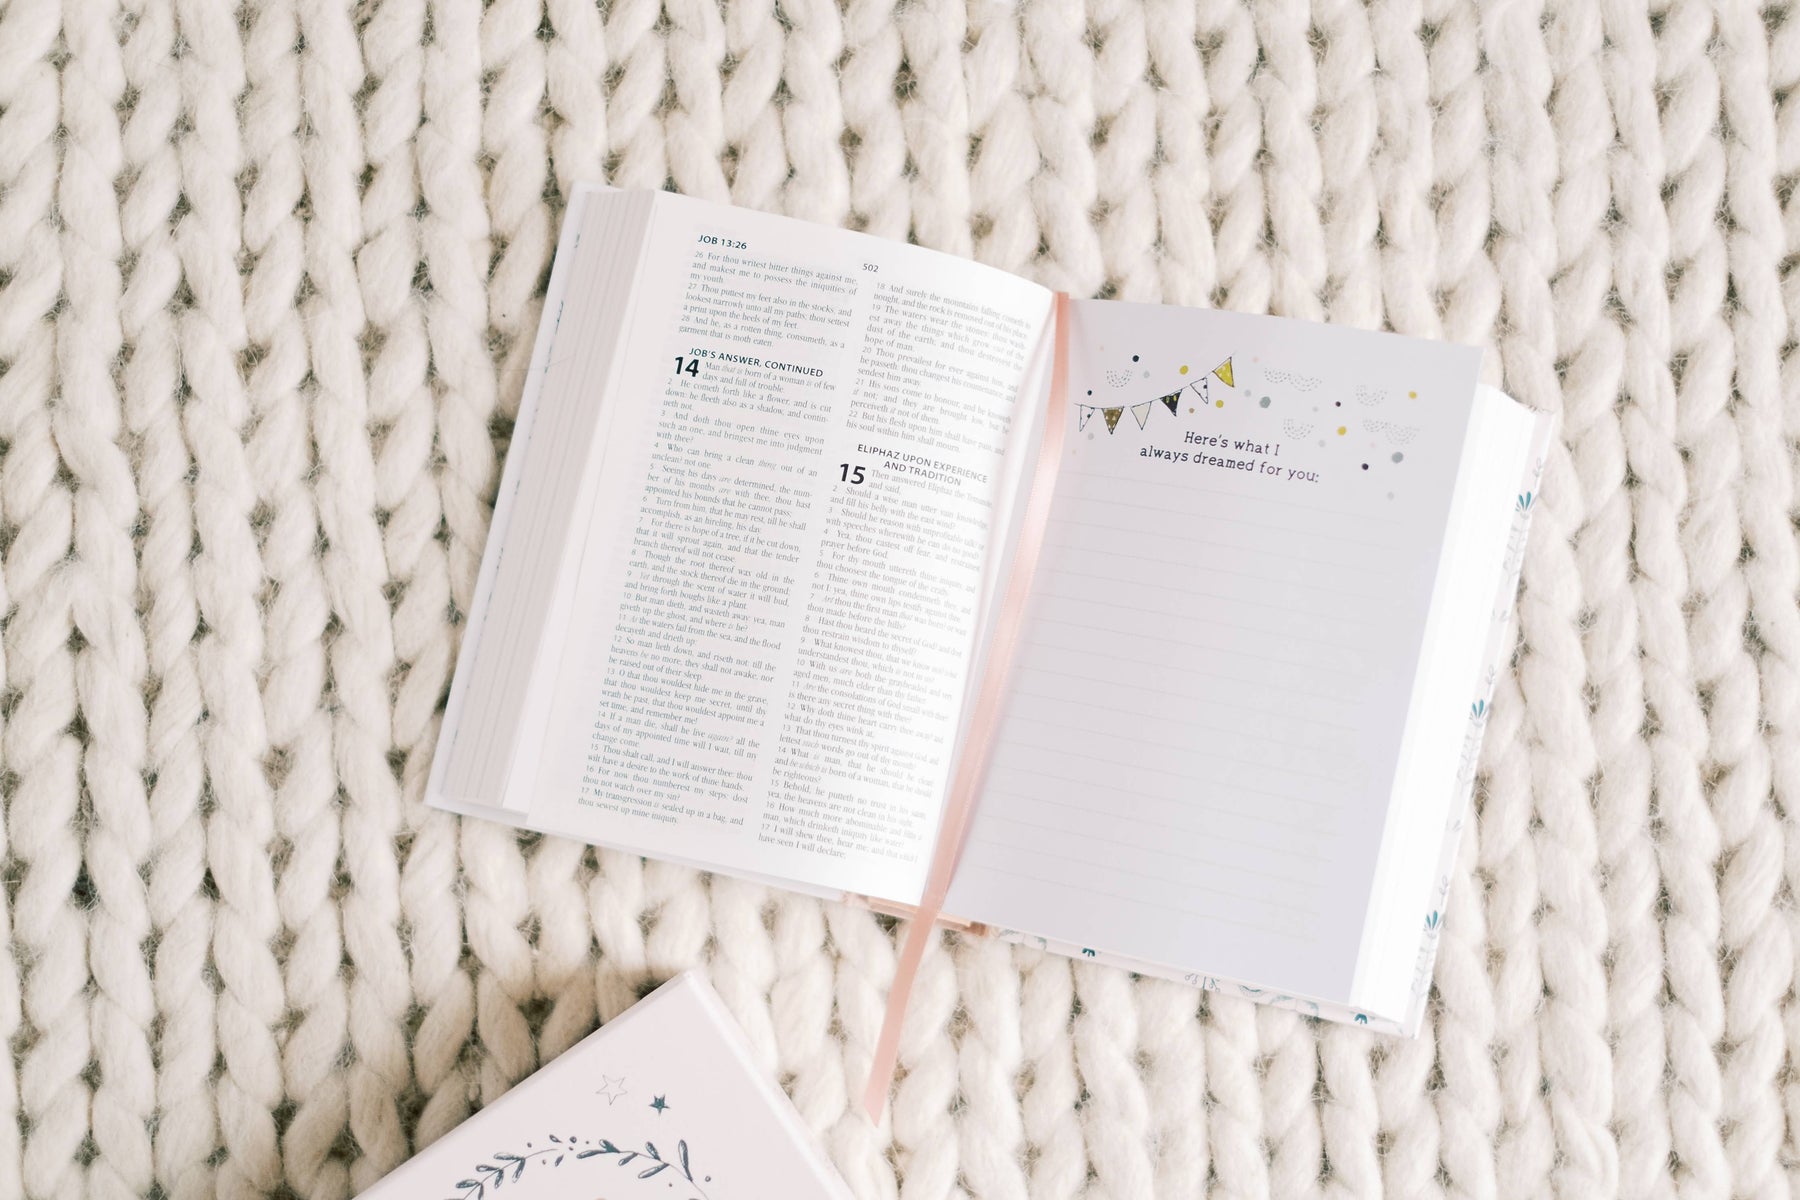 JOB 13:26
502
26 For thou writest bitter things against me,
and makest me to possess the iniquities of
my youth.
27 Thou puttest my feet also in the stocks, and
lookest narrowly unto all my paths; thou settest
a print upon the heels of my feet.
28 And he, as a rotten thing, consumeth, as a
garment that is moth eaten.
JOB'S ANSWER, CONTINUED
14 Man that is born of a woman is of few
days and full of trouble.
2 He cometh forth like a flower, and is cut
down: he fleeth also as a shadow, and contin-
ueth not.
3 And doth thou open thine eyes upon
such an one, and bringest me into judgment
with thee?
4 Who can bring a clean thing out of an
unclean? not one.
5 Seeing his days are determined, the num-
ber of his months are with thee, thou hast
appointed his bounds that he cannot pass;
6 Turn from him, that he may rest, till he shall
accomplish, as an hireling, his day.
7 For there is hope of a tree, if it be cut down,
that it will sprout again, and that the tender
branch thereof will not cease.
8 Though the root thereof wax old in the
earth, and the stock thereof die in the ground;
9 Yet through the scent of water it will bud,
and bring forth boughs like a plant.
10 But man dieth, and wasteth away: yea, man
giveth up the ghost, and where is he?
11 As the waters fail from the sea, and the flood
decayeth and drieth up:
12 So man lieth down, and riseth not: till the
heavens be no more, they shall not awake, nor
be raised out of their sleep.
13 O that thou wouldest hide me in the grave,
that thou wouldest keep me secret, until thy
wrath be past, that thou wouldest appoint me a
set time, and remember me!
14 If a man die, shall he live again? all the
days of my appointed time will I wait, till my
change come.
15 Thou shalt call, and I will answer thee: thou
wilt have a desire to the work of thine hands.
16 For now thou numberest my steps: dost
thou not watch over my sin?
17 My transgression is sealed up in a bag, and
thou sewest up mine iniquity.
18 And surely the mountains falling cometh to
nought, and the rock is removed out of his place.
19 The waters wear the stones: thou wash-
est away the things which grow out of the
dust of the earth; and thou destroyest the
hope of man.
20 Thou prevailest for ever against him, and
he passeth: thou changest his countenance, and
sendest him away.
21 His sons come to honour, and he knoweth
it not; and they are brought low, but he
perceiveth it not of them.
22 But his flesh upon him shall have pain, and
his soul within him shall mourn.
ELIPHAZ UPON EXPERIENCE
AND TRADITION
15 Then answered Eliphaz the Temanite,
and said,
2 Should a wise man utter vain knowledge,
and fill his belly with the east wind?
3 Should he reason with unprofitable talk? or
with speeches wherewith he can do no good?
4 Yea, thou castest off fear, and restrainest
prayer before God.
5 For thy mouth uttereth thine iniquity, and
thou choosest the tongue of the crafty.
6 Thine own mouth condemneth thee, and
not I: yea, thine own lips testify against thee.
7 Art thou the first man that was born? or wast
thou made before the hills?
8 Hast thou heard the secret of God? and dost
thou restrain wisdom to thyself?
9 What knowest thou, that we know not? what
understandest thou, which is not in us?
10 With us are both the grayheaded and very
aged men, much elder than thy father.
11 Are the consolations of God small with thee?
is there any secret thing with thee?
12 Why doth thine heart carry thee away? and
what do thy eyes wink at,
13 That thou turnest thy spirit against God, and
lettest such words go out of thy mouth?
14 What is man, that he should be clean?
and he which is born of a woman, that he should
be righteous?
15 Behold, he putteth no trust in his saints;
yea, the heavens are not clean in his sight.
16 How much more abominable and filthy is
man, which drinketh iniquity like water?
17 I will shew thee, hear me; and that which I
have seen I will declare;
Here's what I
always dreamed for you: